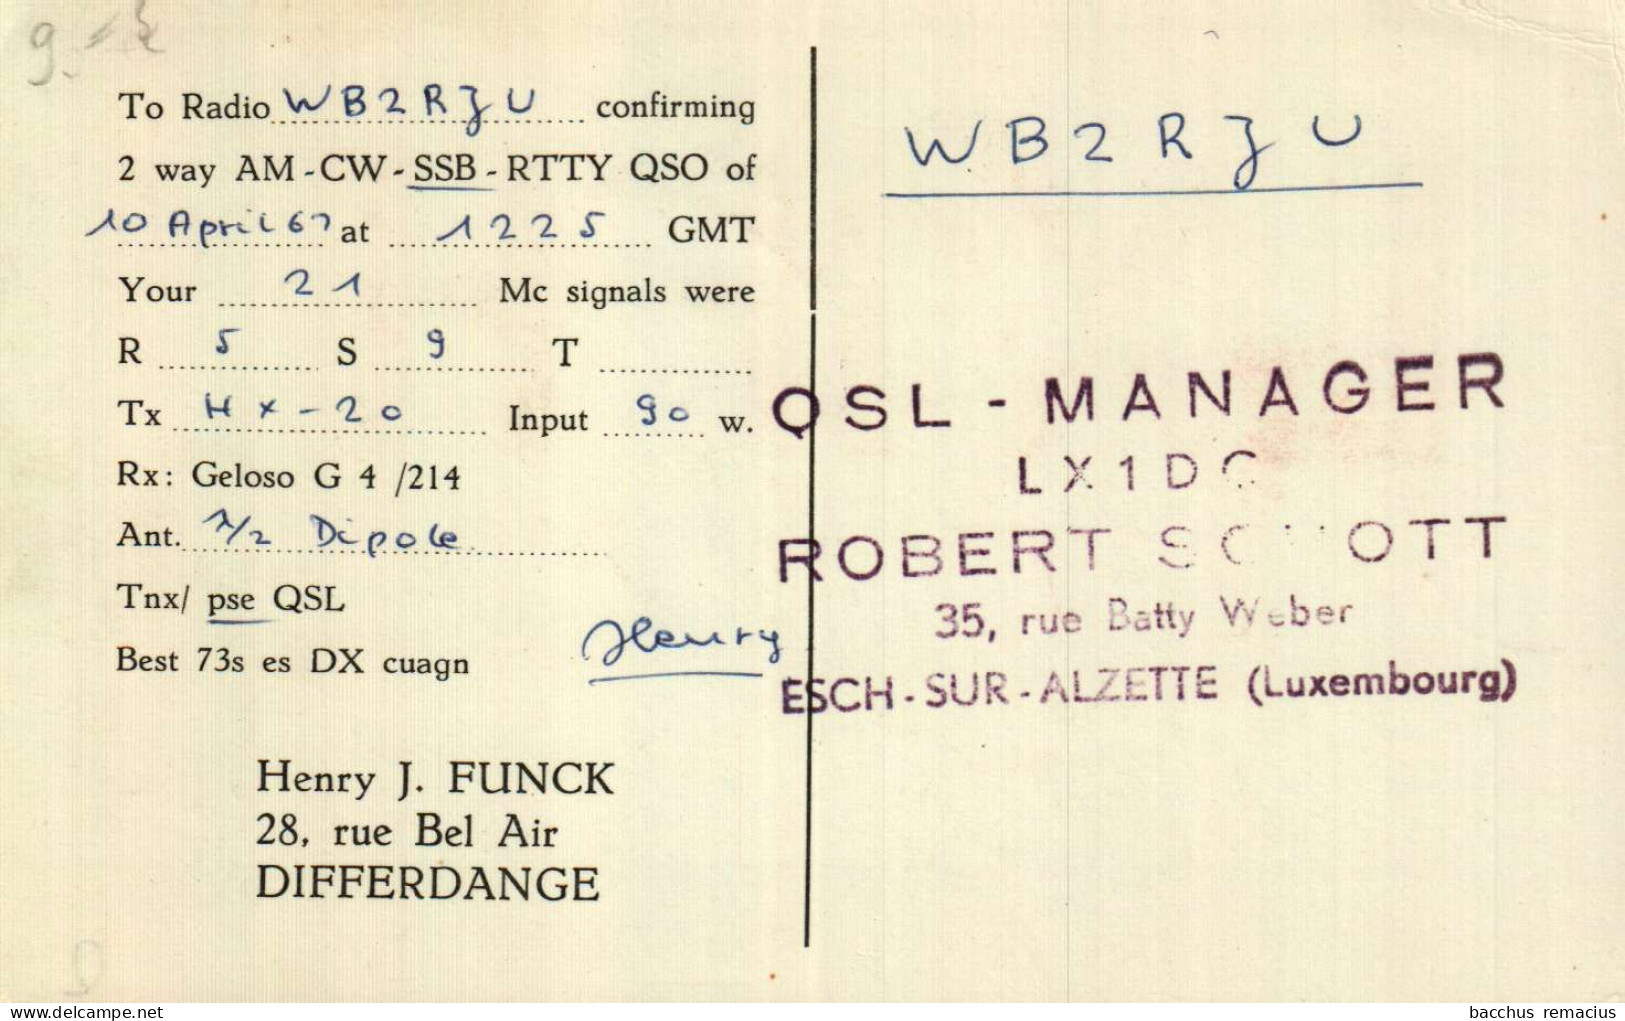 To Radio WB2RJU confirming
2 way AM-CW-SSB-RTTY QSO of
10 April 67 at 1225 GMT
Your 21 Mc signals were
R 5 S 9 T
Tx HX-20 Input 90 w.
Rx: Geloso G 4 /214
Ant. λ/2 Dipole
Tnx/ pse QSL
Best 73s es DX cuagn
Henry
Henry J. FUNCK
28, rue Bel Air
DIFFERDANGE
WB2RJU
QSL-MANAGER
LX1DC
ROBERT SCHOTT
35, rue Batty Weber
ESCH-SUR-ALZETTE (Luxembourg)
delcampe.net
bacchus remacius